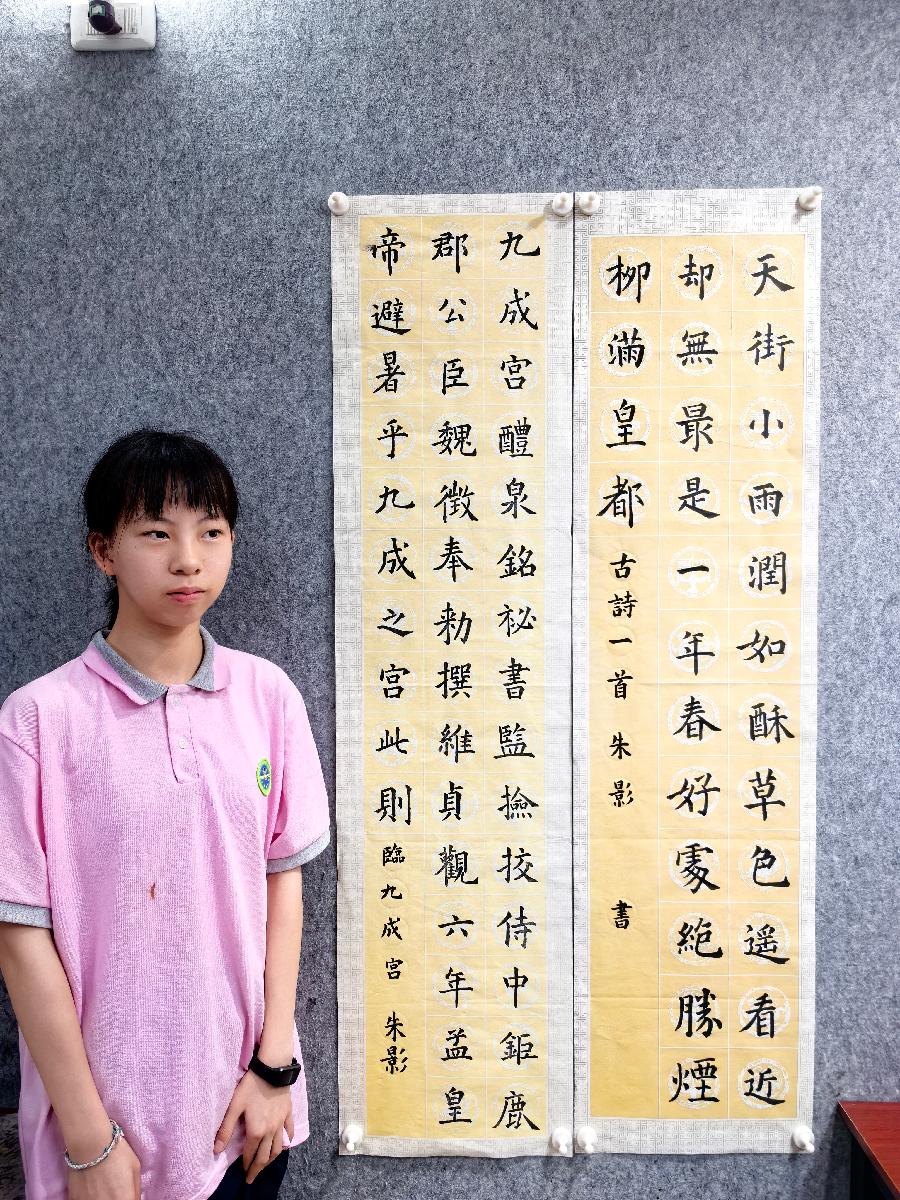 天街小雨潤如酥草色遥看近
却無最是一年春好處絶勝煙
柳滿皇都 古詩一首 朱影 書
九成宮醴泉銘祕書監撿挍侍中鉅鹿
郡公臣魏徵奉勅撰維貞觀六年孟皇
帝避暑乎九成之宮此則 臨九成宮 朱影